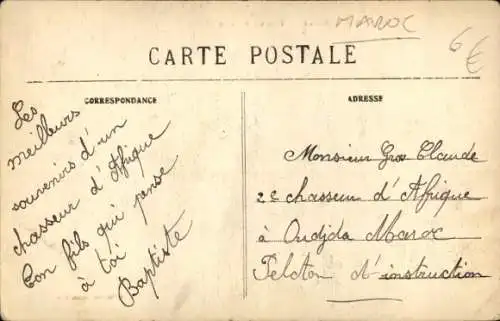 MAROC
6 €
CARTE POSTALE
CORRESPONDANCE
Les
meilleurs
souvenirs d'un
chasseur d'Afrique
Ton fils qui pense
à toi
Baptiste
ADRESSE
Monsieur Gros Claude
2e chasseur d'Afrique
à Oudjda Maroc
Peloton d'instruction